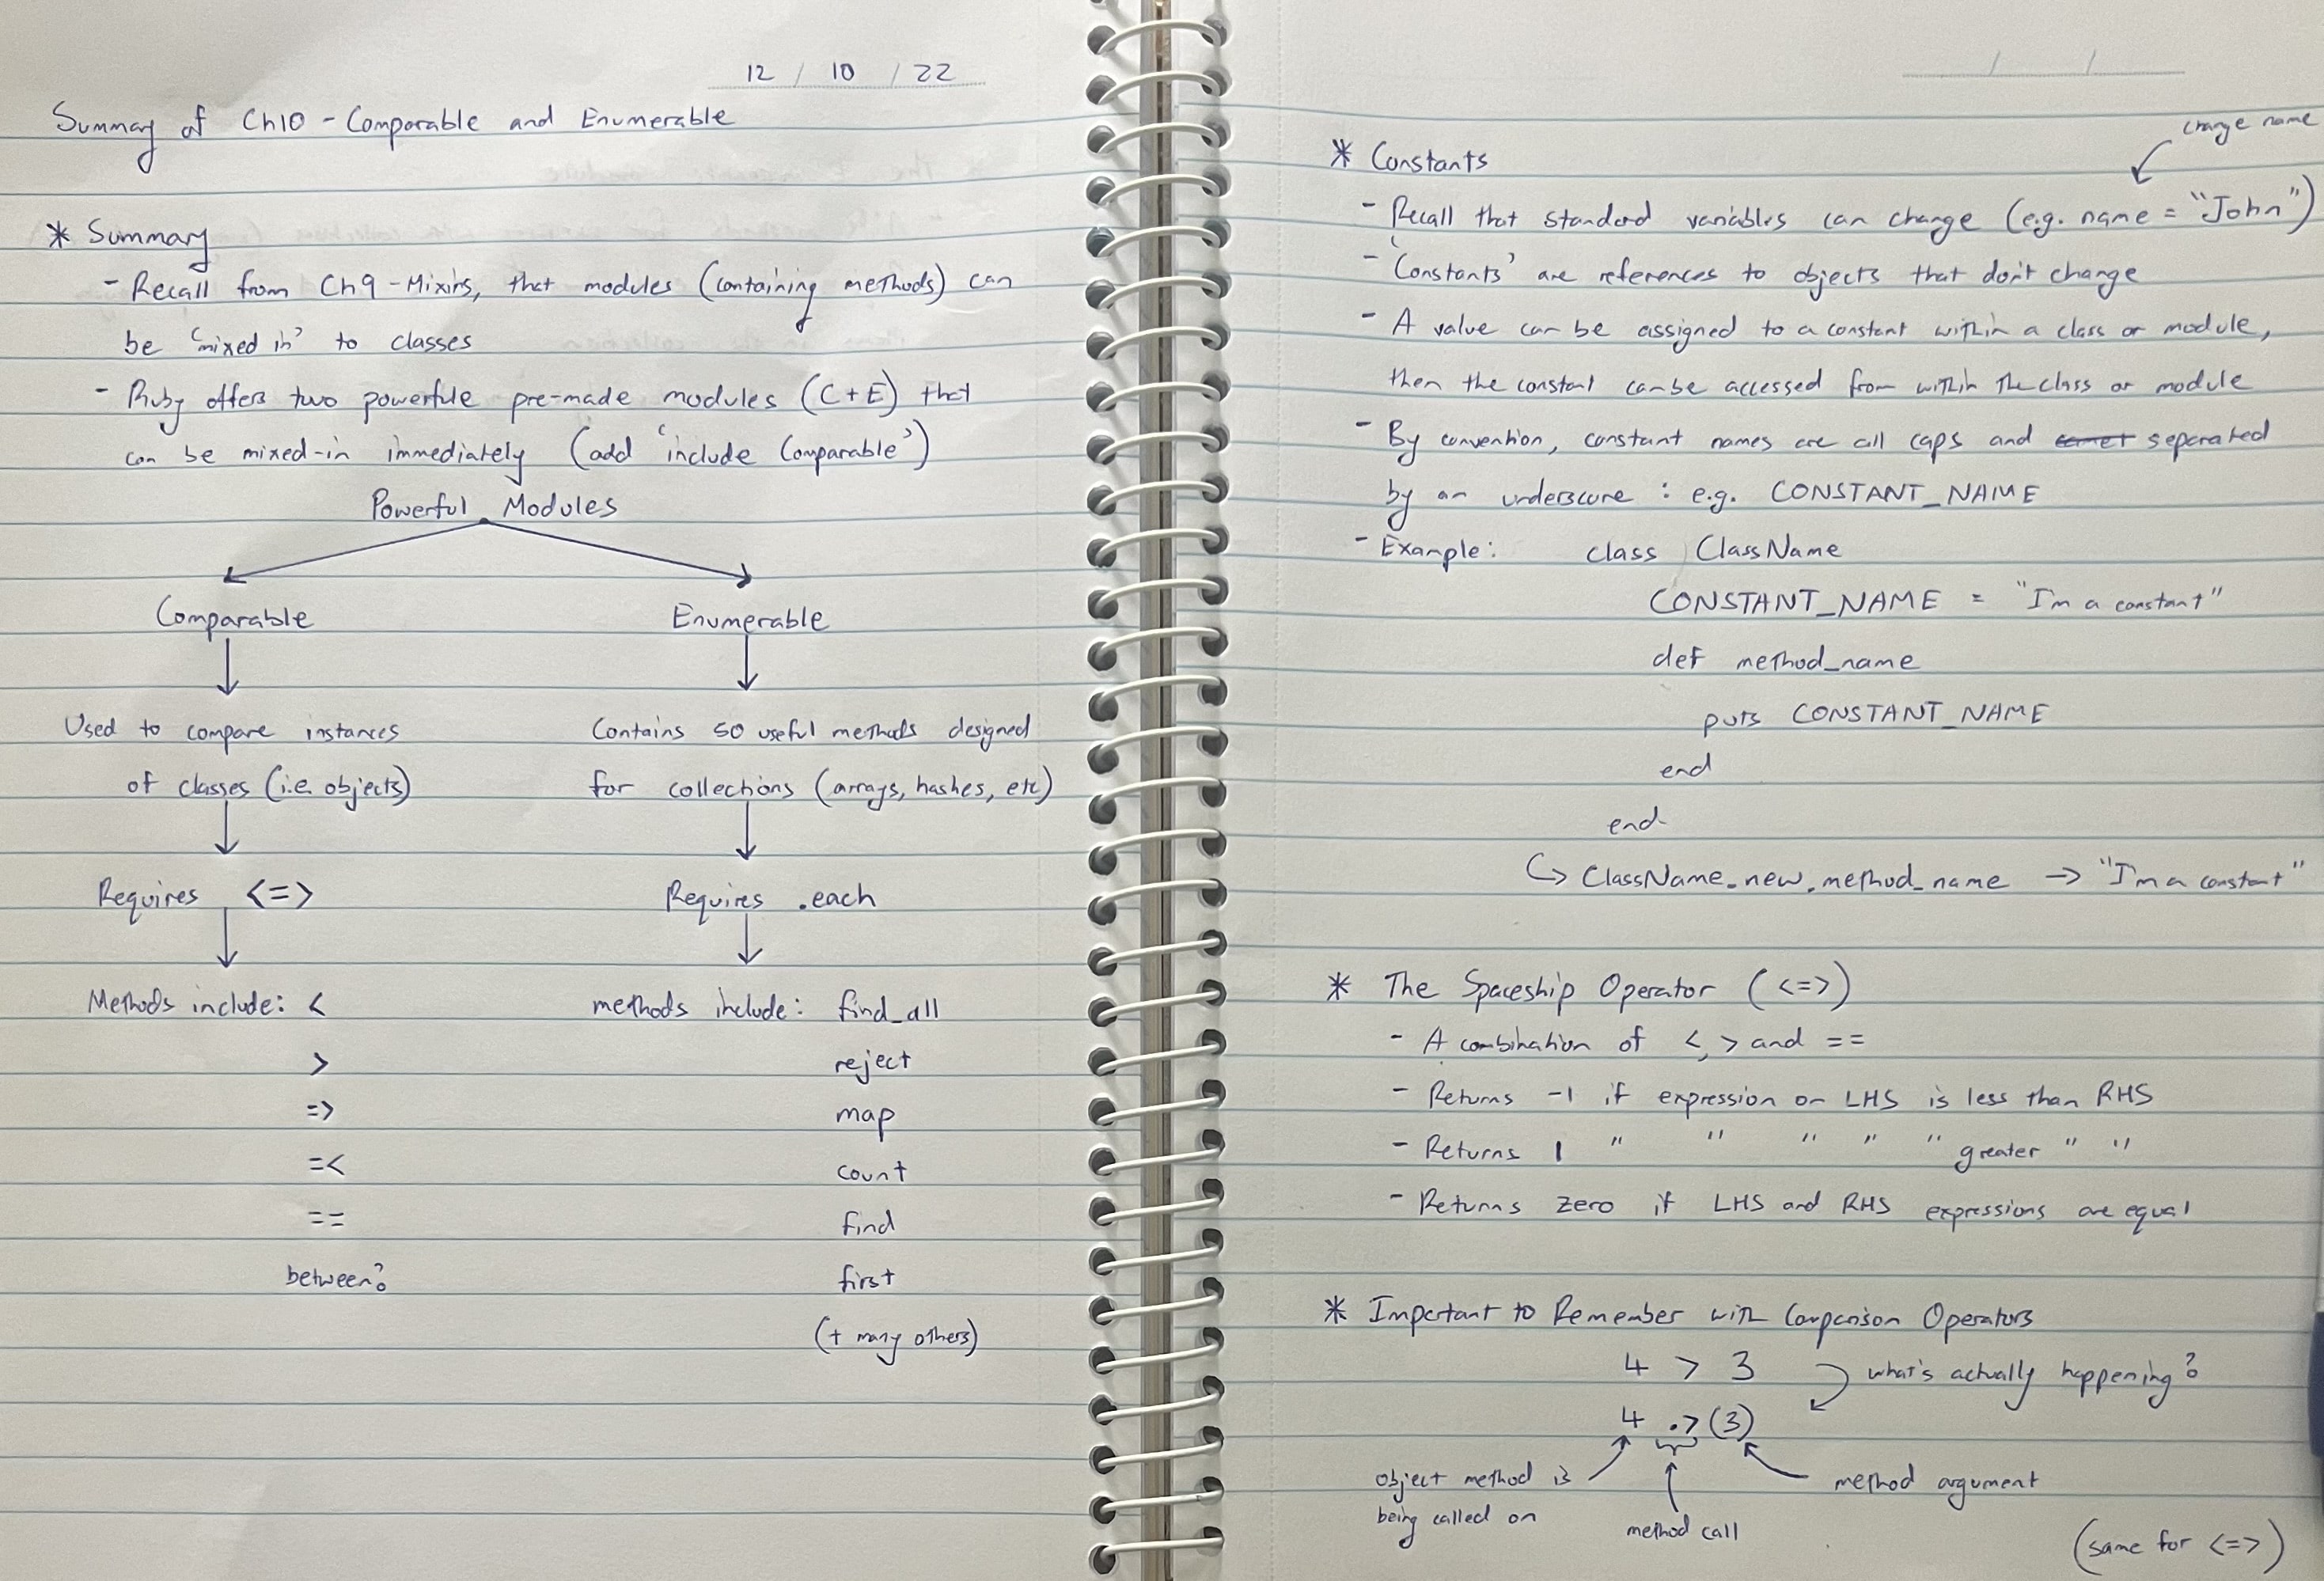 12 / 10 / 22
Summary of Ch10 - Comparable and Enumerable
* Summary
- Recall from Ch9 - Mixins, that modules (containing methods) can
be 'mixed in' to classes
- Ruby offers two powerfule pre-made modules (C+E) that
can be mixed-in immediately (add 'include Comparable')
Powerful Modules
Comparable
Used to compare instances
of classes (i.e. objects)
Requires <=>
Methods include: <
>
=>
=<
==
between?
Enumerable
Contains 50 useful methods designed
for collections (arrays, hashes, etc)
Requires .each
methods include: find_all
reject
map
count
find
first
(+ many others)
/ /
change name
* Constants
- Recall that standard variables can change (e.g. name = "John")
- 'Constants' are references to objects that don't change
- A value can be assigned to a constant within a class or module,
then the constant can be accessed from within the class or module
- By convention, constant names are all caps and separated
by an underscore : e.g. CONSTANT_NAME
- Example: class ClassName
CONSTANT_NAME = "I'm a constant"
def method_name
puts CONSTANT_NAME
end
end
↪ ClassName.new.method_name → "I'm a constant"
* The Spaceship Operator (<=>)
- A combination of <, > and ==
- Returns -1 if expression on LHS is less than RHS
- Returns 1 " " " " " greater " "
- Returns zero if LHS and RHS expressions are equal
* Important to Remember with Comparison Operators
4 > 3 what's actually happening?
4 .>(3)
object method is
being called on
method call
method argument
(same for <=>)